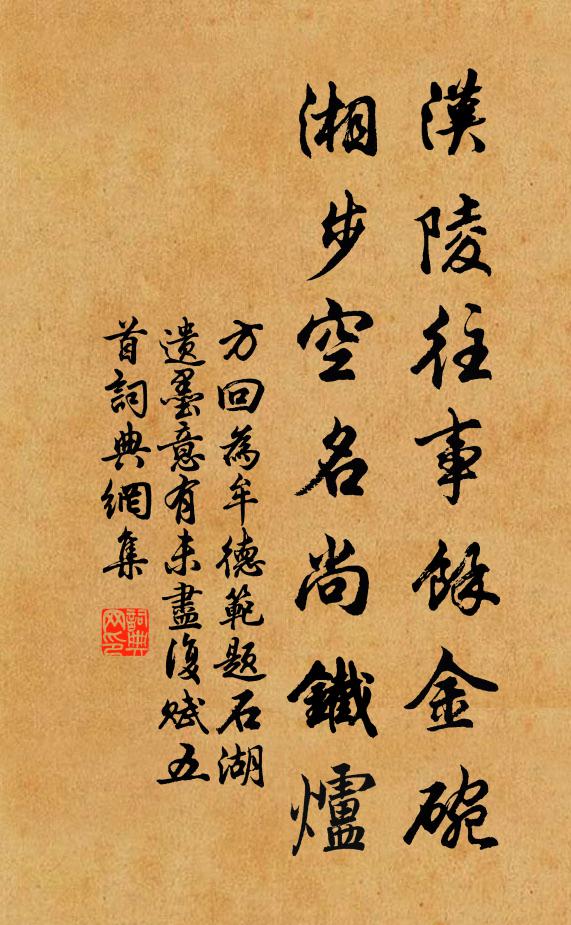 漢陵往事餘金碗
湘步空名尚鐵爐
方回為牟德範題石湖
遺墨意有未盡復賦五
首詞典網集
詞典网印